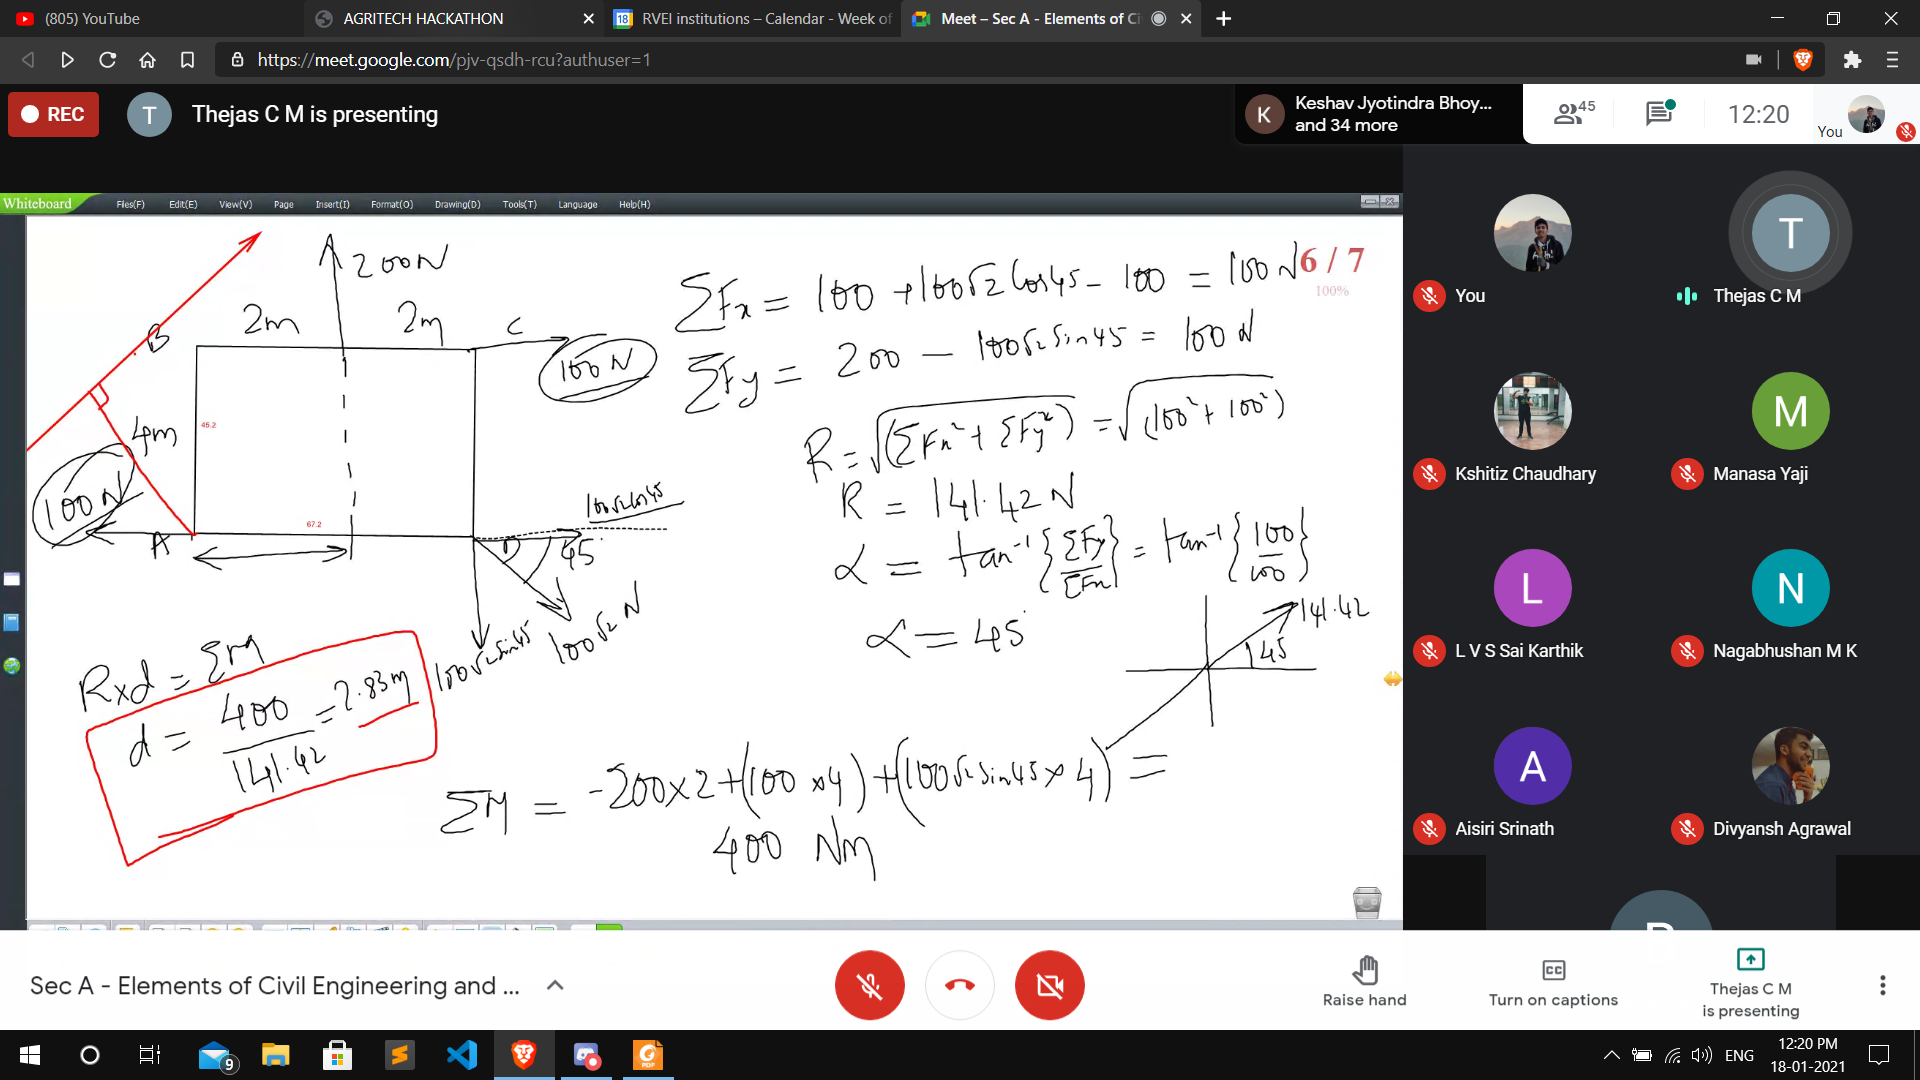 (805) YouTube
AGRITECH HACKATHON
18 RVEI institutions – Calendar - Week of
Meet – Sec A - Elements of Ci
https://meet.google.com/pjv-qsdh-rcu?authuser=1
REC
T
Thejas C M is presenting
K
Keshav Jyotindra Bhoy...
and 34 more
45
12:20
You
Whiteboard
Files(F) Edit(E) View(V) Page Insert(I) Format(O) Drawing(D) Tools(T) Language Help(H)
6 / 7
100%
200N
2m 2m C
B
100N
4m
45.2
100N
67.2
A
D
45
100√2cos45
100√2sin45
100√2 N
ΣFx = 100 + 100√2 cos45 - 100 = 100 N
ΣFy = 200 - 100√2 sin45 = 100 N
R = √(ΣFx² + ΣFy²) = √(100² + 100²)
R = 141.42 N
α = tan⁻¹ {ΣFy/ΣFx} = tan⁻¹ {100/100}
α = 45
141.42
45
Rxd = ΣM
d = 400/141.42 = 2.83m
ΣM = -200x2 + (100 x4) + (100√2sin45 x 4) =
400 Nm
You
T
Thejas C M
Kshitiz Chaudhary
M
Manasa Yaji
L
L V S Sai Karthik
N
Nagabhushan M K
A
Aisiri Srinath
Divyansh Agrawal
Sec A - Elements of Civil Engineering and ...
Raise hand
Turn on captions
Thejas C M
is presenting
9
PDF
ENG
12:20 PM
18-01-2021